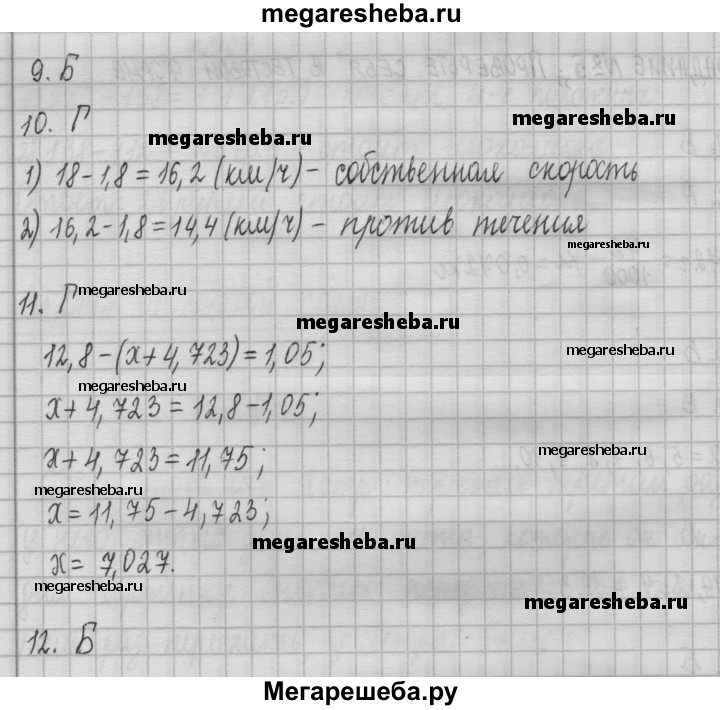 megaresheba.ru
9. Б
10. Г
megaresheba.ru
megaresheba.ru
1) 18-1,8=16,2 (км/ч) - собственная скорость
2) 16,2-1,8=14,4 (км/ч) - против течения
megaresheba.ru
11. Г
megaresheba.ru
megaresheba.ru
12,8-(x+4,723)=1,05;
megaresheba.ru
megaresheba.ru
x+4,723=12,8-1,05;
x+4,723=11,75;
megaresheba.ru
megaresheba.ru
x=11,75-4,723;
megaresheba.ru
x=7,027.
megaresheba.ru
megaresheba.ru
12. Б
Мегарешеба.ру